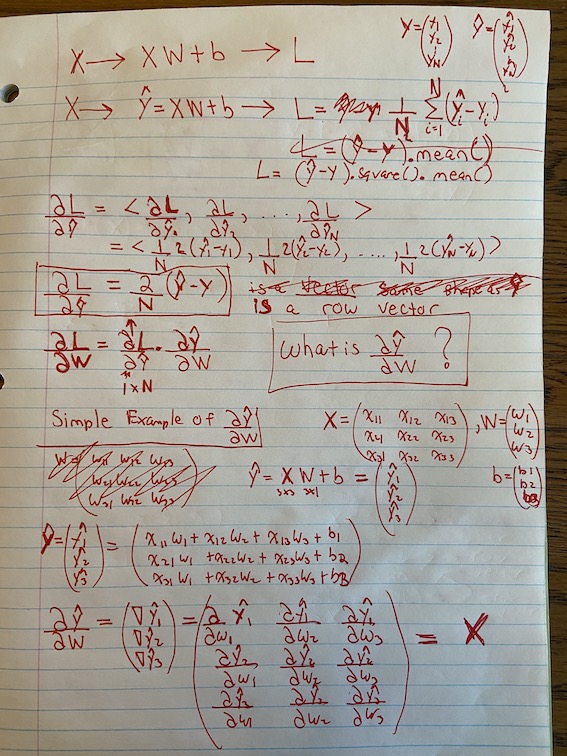 X → XW+b → L
Y = (Y₁ Y₂ ⋮ Y_N) Ŷ = (Ŷ₁ Ŷ₂ ⋮ Ŷ_N)
X → Ŷ = XW+b → L = 1/N ∑_{i=1}^{N} (Ŷᵢ - Yᵢ)²
L = (Ŷ - Y).mean()
L = (Ŷ-Y).square().mean()
∂L/∂Ŷ = < ∂L/∂ŷ₁, ∂L/∂ŷ₂, ...., ∂L/∂ŷ_N >
= < 1/N 2(ŷ₁-y₁), 1/N 2(ŷ₂-y₂), ...., 1/N 2(ŷ_N-y_N) >
∂L/∂Ŷ = 2/N (Ŷ-Y) is a vector same shape as Ŷ
is a row vector
∂L/∂W = ∂L/∂Ŷ · ∂Ŷ/∂W
1×N
What is ∂Ŷ/∂W ?
Simple Example of ∂Ŷ/∂W
X = (x₁₁ x₁₂ x₁₃ / x₂₁ x₂₂ x₂₃ / x₃₁ x₃₂ x₃₃), W = (w₁ w₂ w₃)
W = (w₁₁ w₁₂ w₁₃ / w₂₁ w₂₂ w₂₃ / w₃₁ w₃₂ w₃₃)
Ŷ = XW+b = (ŷ₁ ŷ₂ ŷ₃) b = (b₁ b₂ b₃)
3×3 3×1
Ŷ = (ŷ₁ ŷ₂ ŷ₃) = (x₁₁w₁ + x₁₂w₂ + x₁₃w₃ + b₁
x₂₁w₁ + x₂₂w₂ + x₂₃w₃ + b₂
x₃₁w₁ + x₃₂w₂ + x₃₃w₃ + b₃)
∂Ŷ/∂W = (∇ŷ₁ ∇ŷ₂ ∇ŷ₃) = (∂ŷ₁/∂w₁ ∂ŷ₁/∂w₂ ∂ŷ₁/∂w₃
∂ŷ₂/∂w₁ ∂ŷ₂/∂w₂ ∂ŷ₂/∂w₃
∂ŷ₃/∂w₁ ∂ŷ₃/∂w₂ ∂ŷ₃/∂w₃) = X